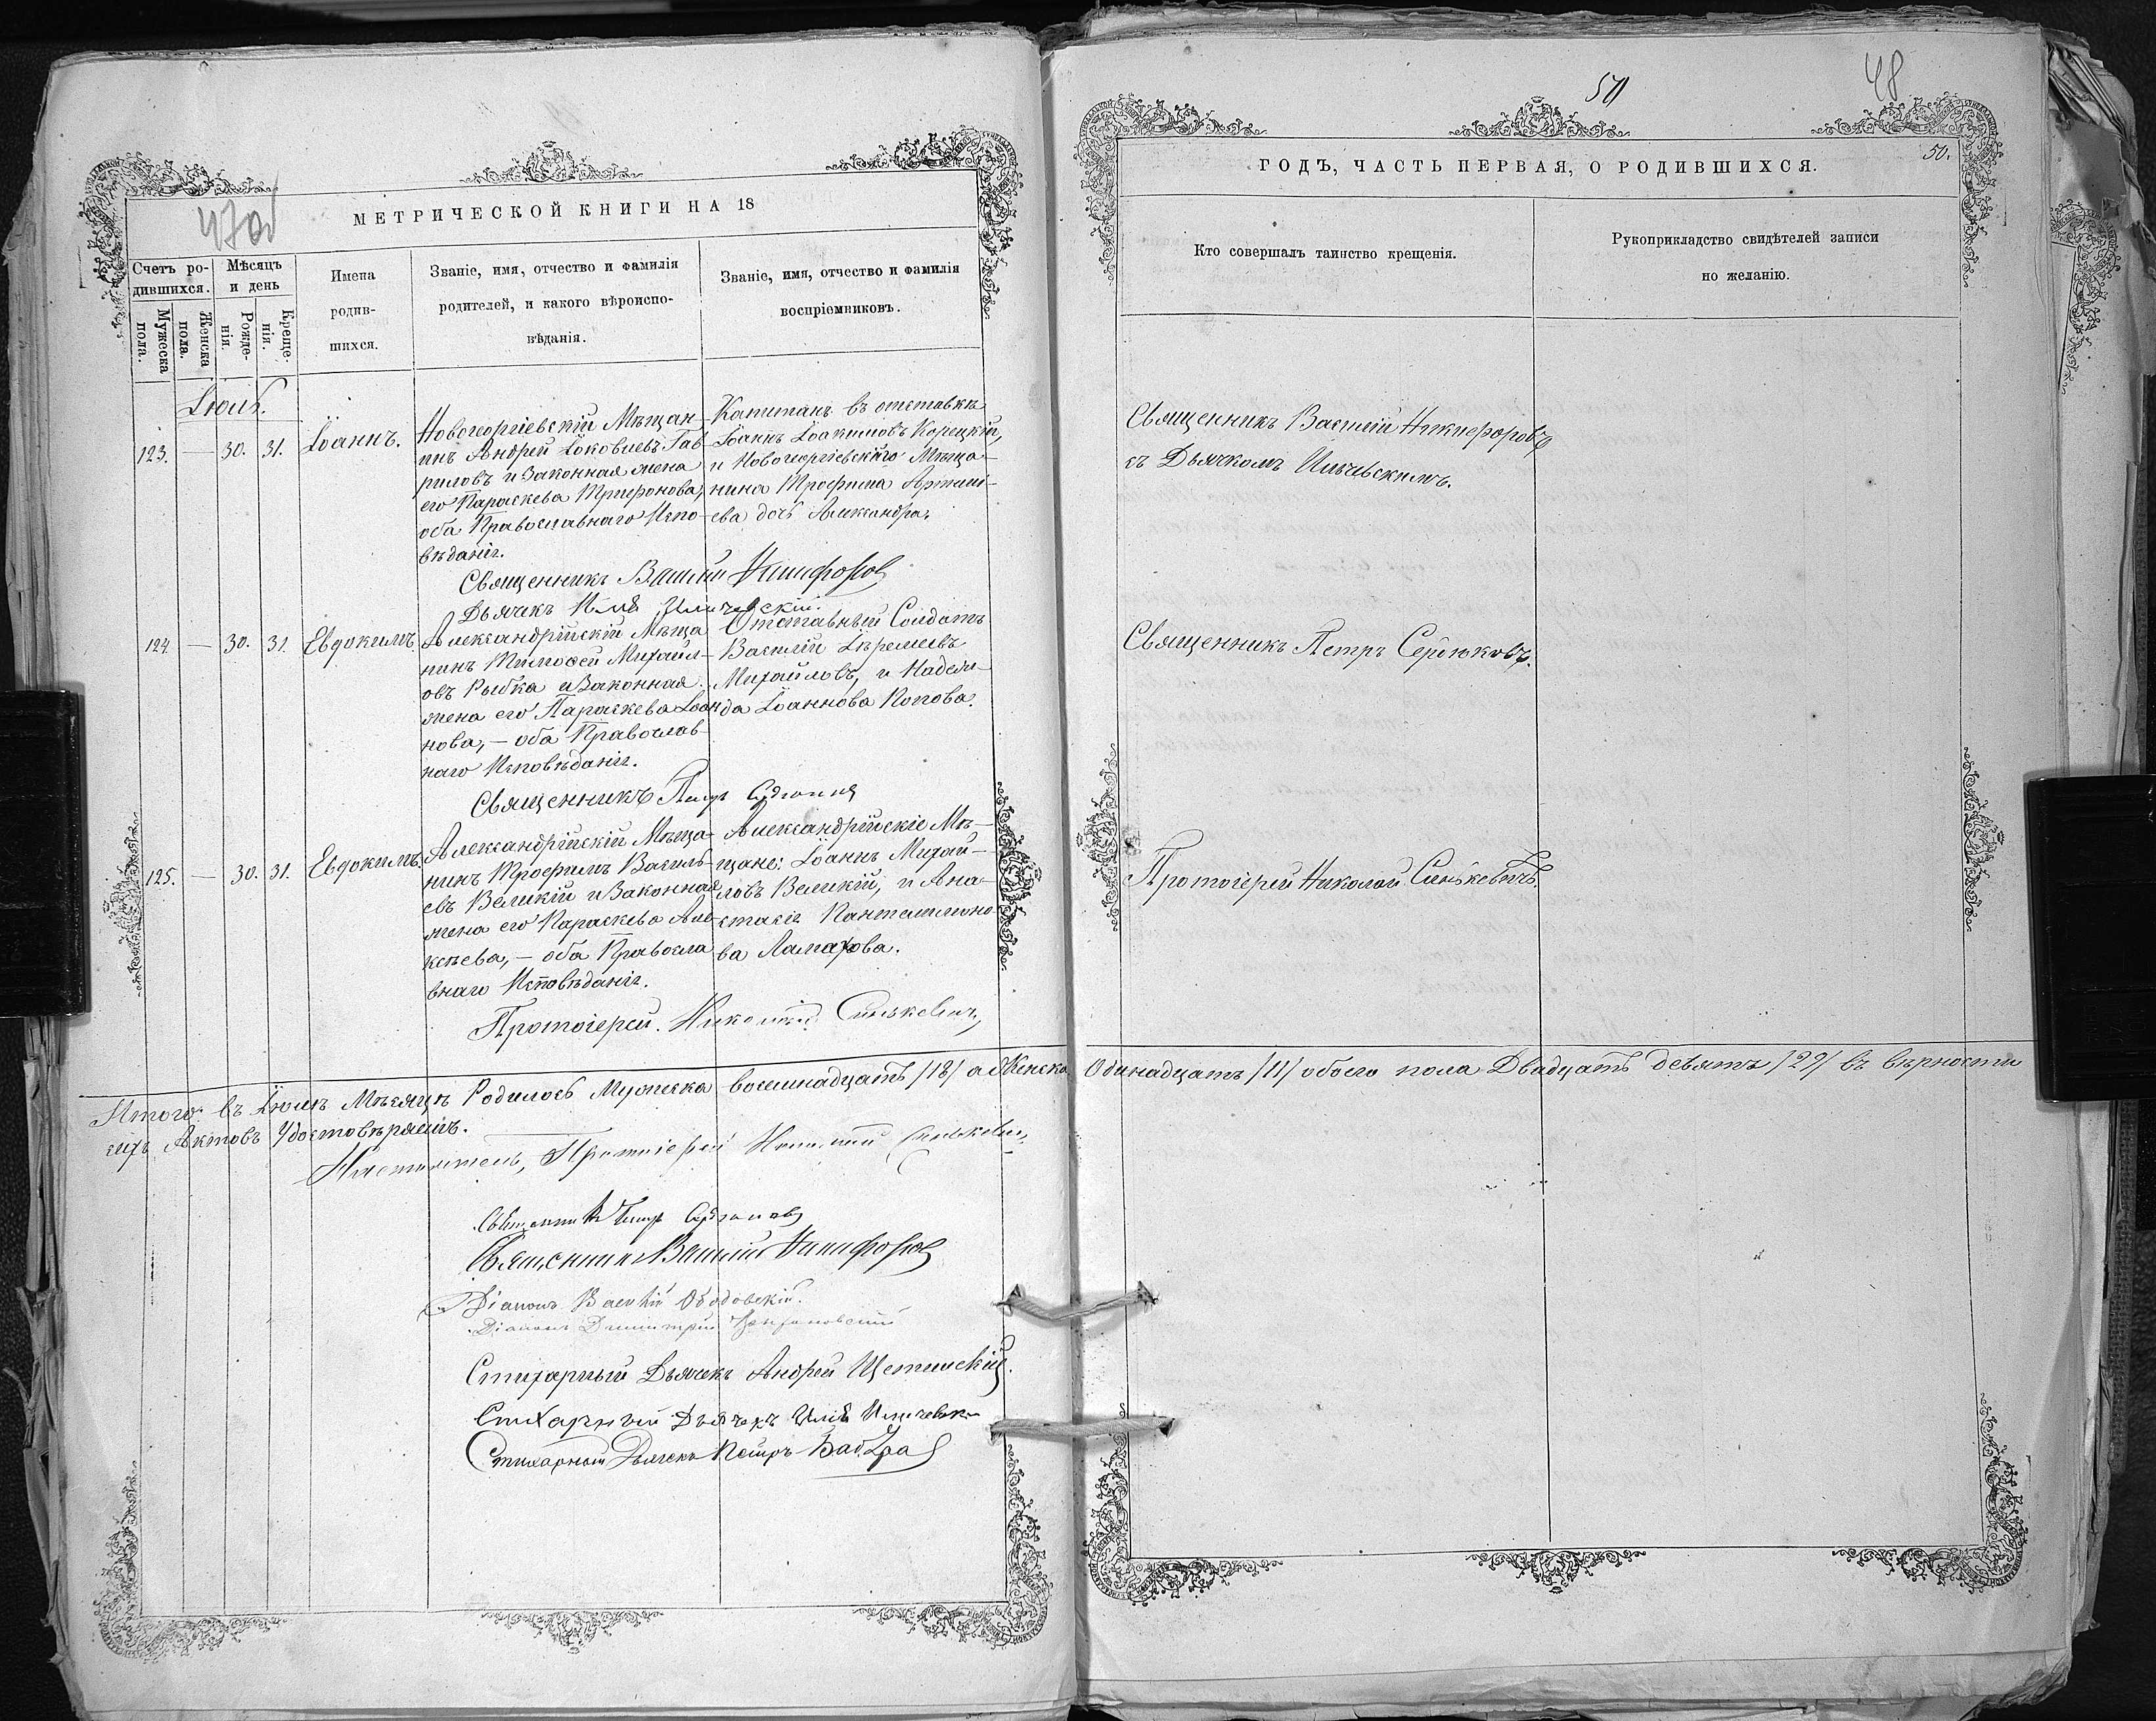 47 об
МЕТРИЧЕСКОЙ КНИГИ НА 18
Счетъ ро-
дившихся.
Мужеска
пола.
Женска
пола.
Мѣсяцъ
и день
Рожде-
нія.
Креще-
нія.
Имена
родив-
шихся.
Званіе, имя, отчество и фамилія
родителей, и какого вѣроиспо-
вѣданія.
Званіе, имя, отчество и фамилія
воспріемниковъ.
Іюль.
123. — 30. 31. Іоаннъ.
Новогеоргіевскій Мѣщан-
инъ Андрей Іаковлевъ Гав
риловъ и Законная жена
его Параскева Трифонова,
оба Православнаго Испо-
вѣданія.
Капитанъ въ отставкѣ
Іоаннъ Іоакимовъ Корецкій,
и Новогеоргіевскаго Мѣща-
нина Трофима Артемі-
ева дочь Александра.
Священникъ Василій Никифоровъ
Дьячекъ Илія Ильчевскій.
124. — 30. 31. Евдокимъ
Александрійскій Мѣща
нинъ Тимофей Михайл-
овъ Рыбка и Законная
жена его Параскева Іоан
нова, — оба Православ-
наго Исповѣданія.
Отставный Солдатъ
Василій Іеремеевъ
Михайловъ, и Надеж-
да Іоаннова Попова.
Священникъ Петръ Сердюковъ
125. — 30. 31. Евдокимъ
Александрійскій Мѣща-
нинъ Трофимъ Василь-
евъ Великій и Законная
жена его Параскева Але-
ксѣева, — оба Правосла
внаго Исповѣданія.
Александрійскіе Мѣ-
щане: Іоаннъ Михай-
ловъ Великій, и Ана-
стасія Пантелеимоно-
ва Ламахова.
Протоіерей Николай Синькевичъ
Итого въ Іюлѣ Мѣсяцѣ Родилось Мужеска восемнадцать /18/ а Женска Одинадцать /11/ обоего пола Двадцать девять /29/ въ вѣрности
сихъ Актовъ Удостовѣряемъ.
Настоятель, Протоіерей Николай Синькевичъ
Священникъ Петръ Сердюковъ
Священникъ Василій Никифоровъ
Діаконъ Василій Ободовскій.
Діаконъ Димитрій
Стихарный Дьячекъ Андрей Щетинскій.
Стихарный Дьячекъ Илія Ильчевск
Стихарный Дьячекъ Петръ
50
48
50.
ГОДЪ, ЧАСТЬ ПЕРВАЯ, О РОДИВШИХСЯ.
Кто совершалъ таинство крещенія.
Рукоприкладство свидѣтелей записи
по желанію.
Священникъ Василій Никифоровъ
съ Дьячкомъ Ильчевскимъ.
Священникъ Петръ Сердюковъ.
Протоіерей Николай Синькевичъ.